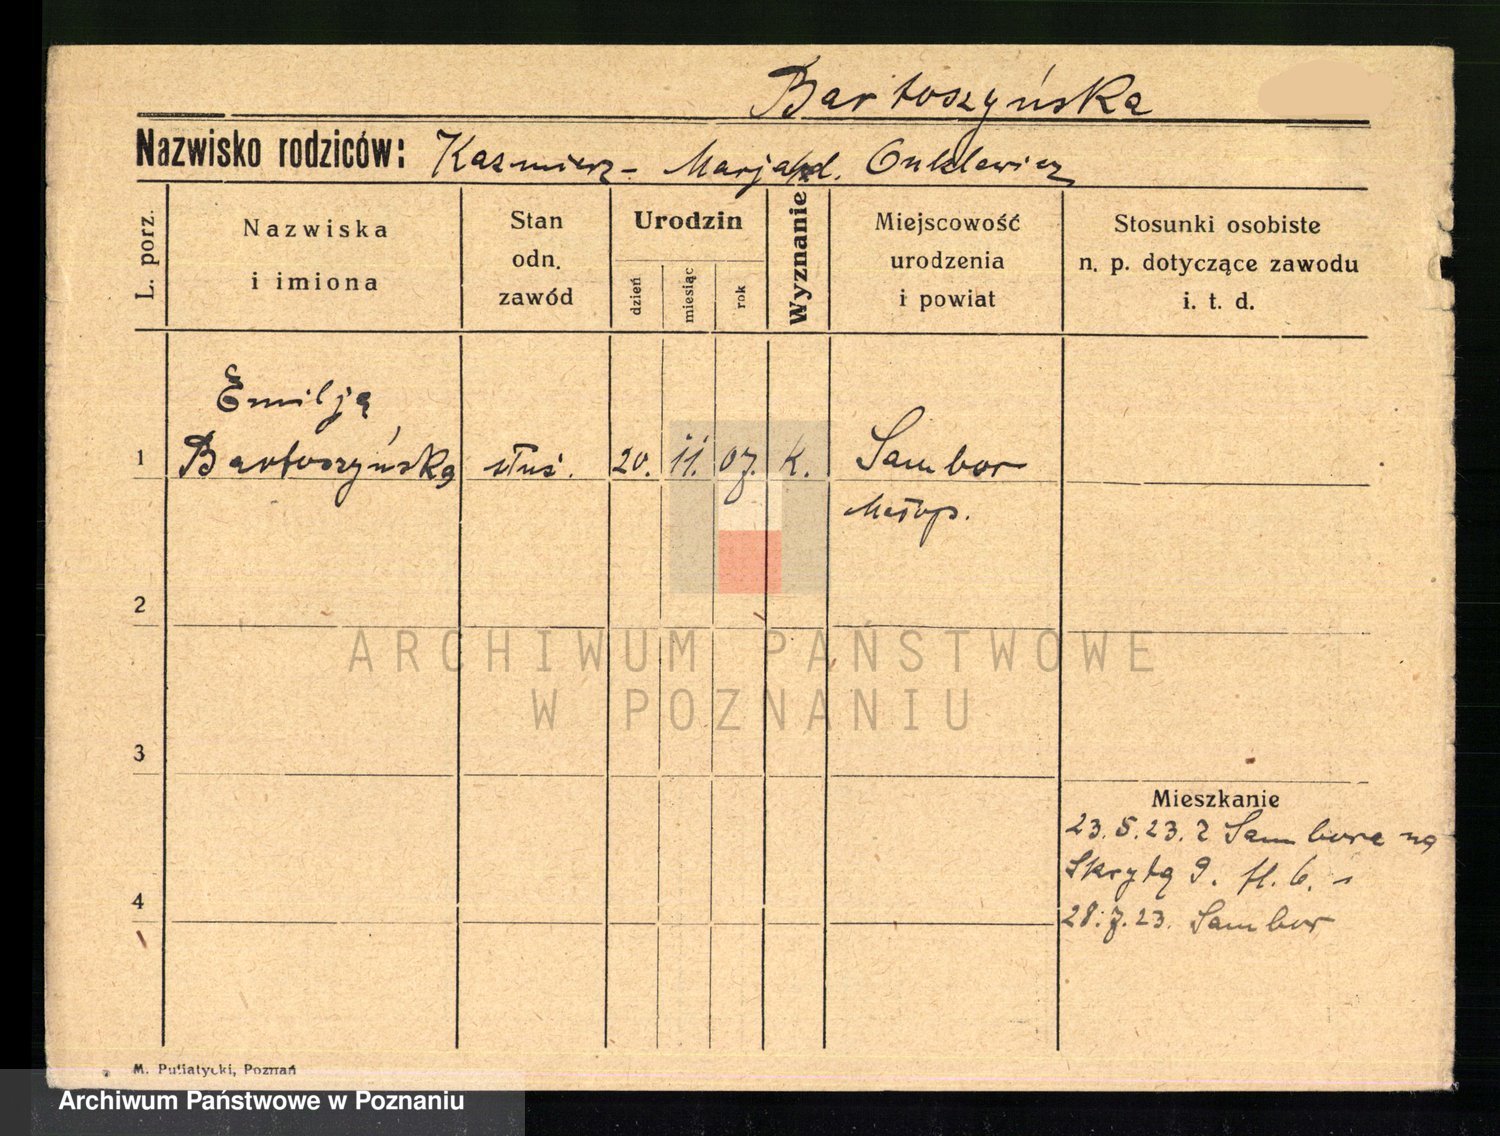 Bartoszyńska
Nazwisko rodziców: Kazmierz - Marja d.
L. porz.
Nazwiska
i imiona
Stan
odn.
zawód
Urodzin
dzień
miesiąc
rok
Wyznanie
Miejscowość
urodzenia
i powiat
Stosunki osobiste
n. p. dotyczące zawodu
i. t. d.
Emilja
1 Bartoszyńska służ. 20. 11. 07. K. Sambor
Małop.
2
ARCHIWUM PAŃSTWOWE
W POZNANIU
3
Mieszkanie
23.5.23. z Sambora na
Skrytą 9. fl. 6. -
4
28.7.23. Sambor
M. Putiatycki, Poznań
Archiwum Państwowe w Poznaniu